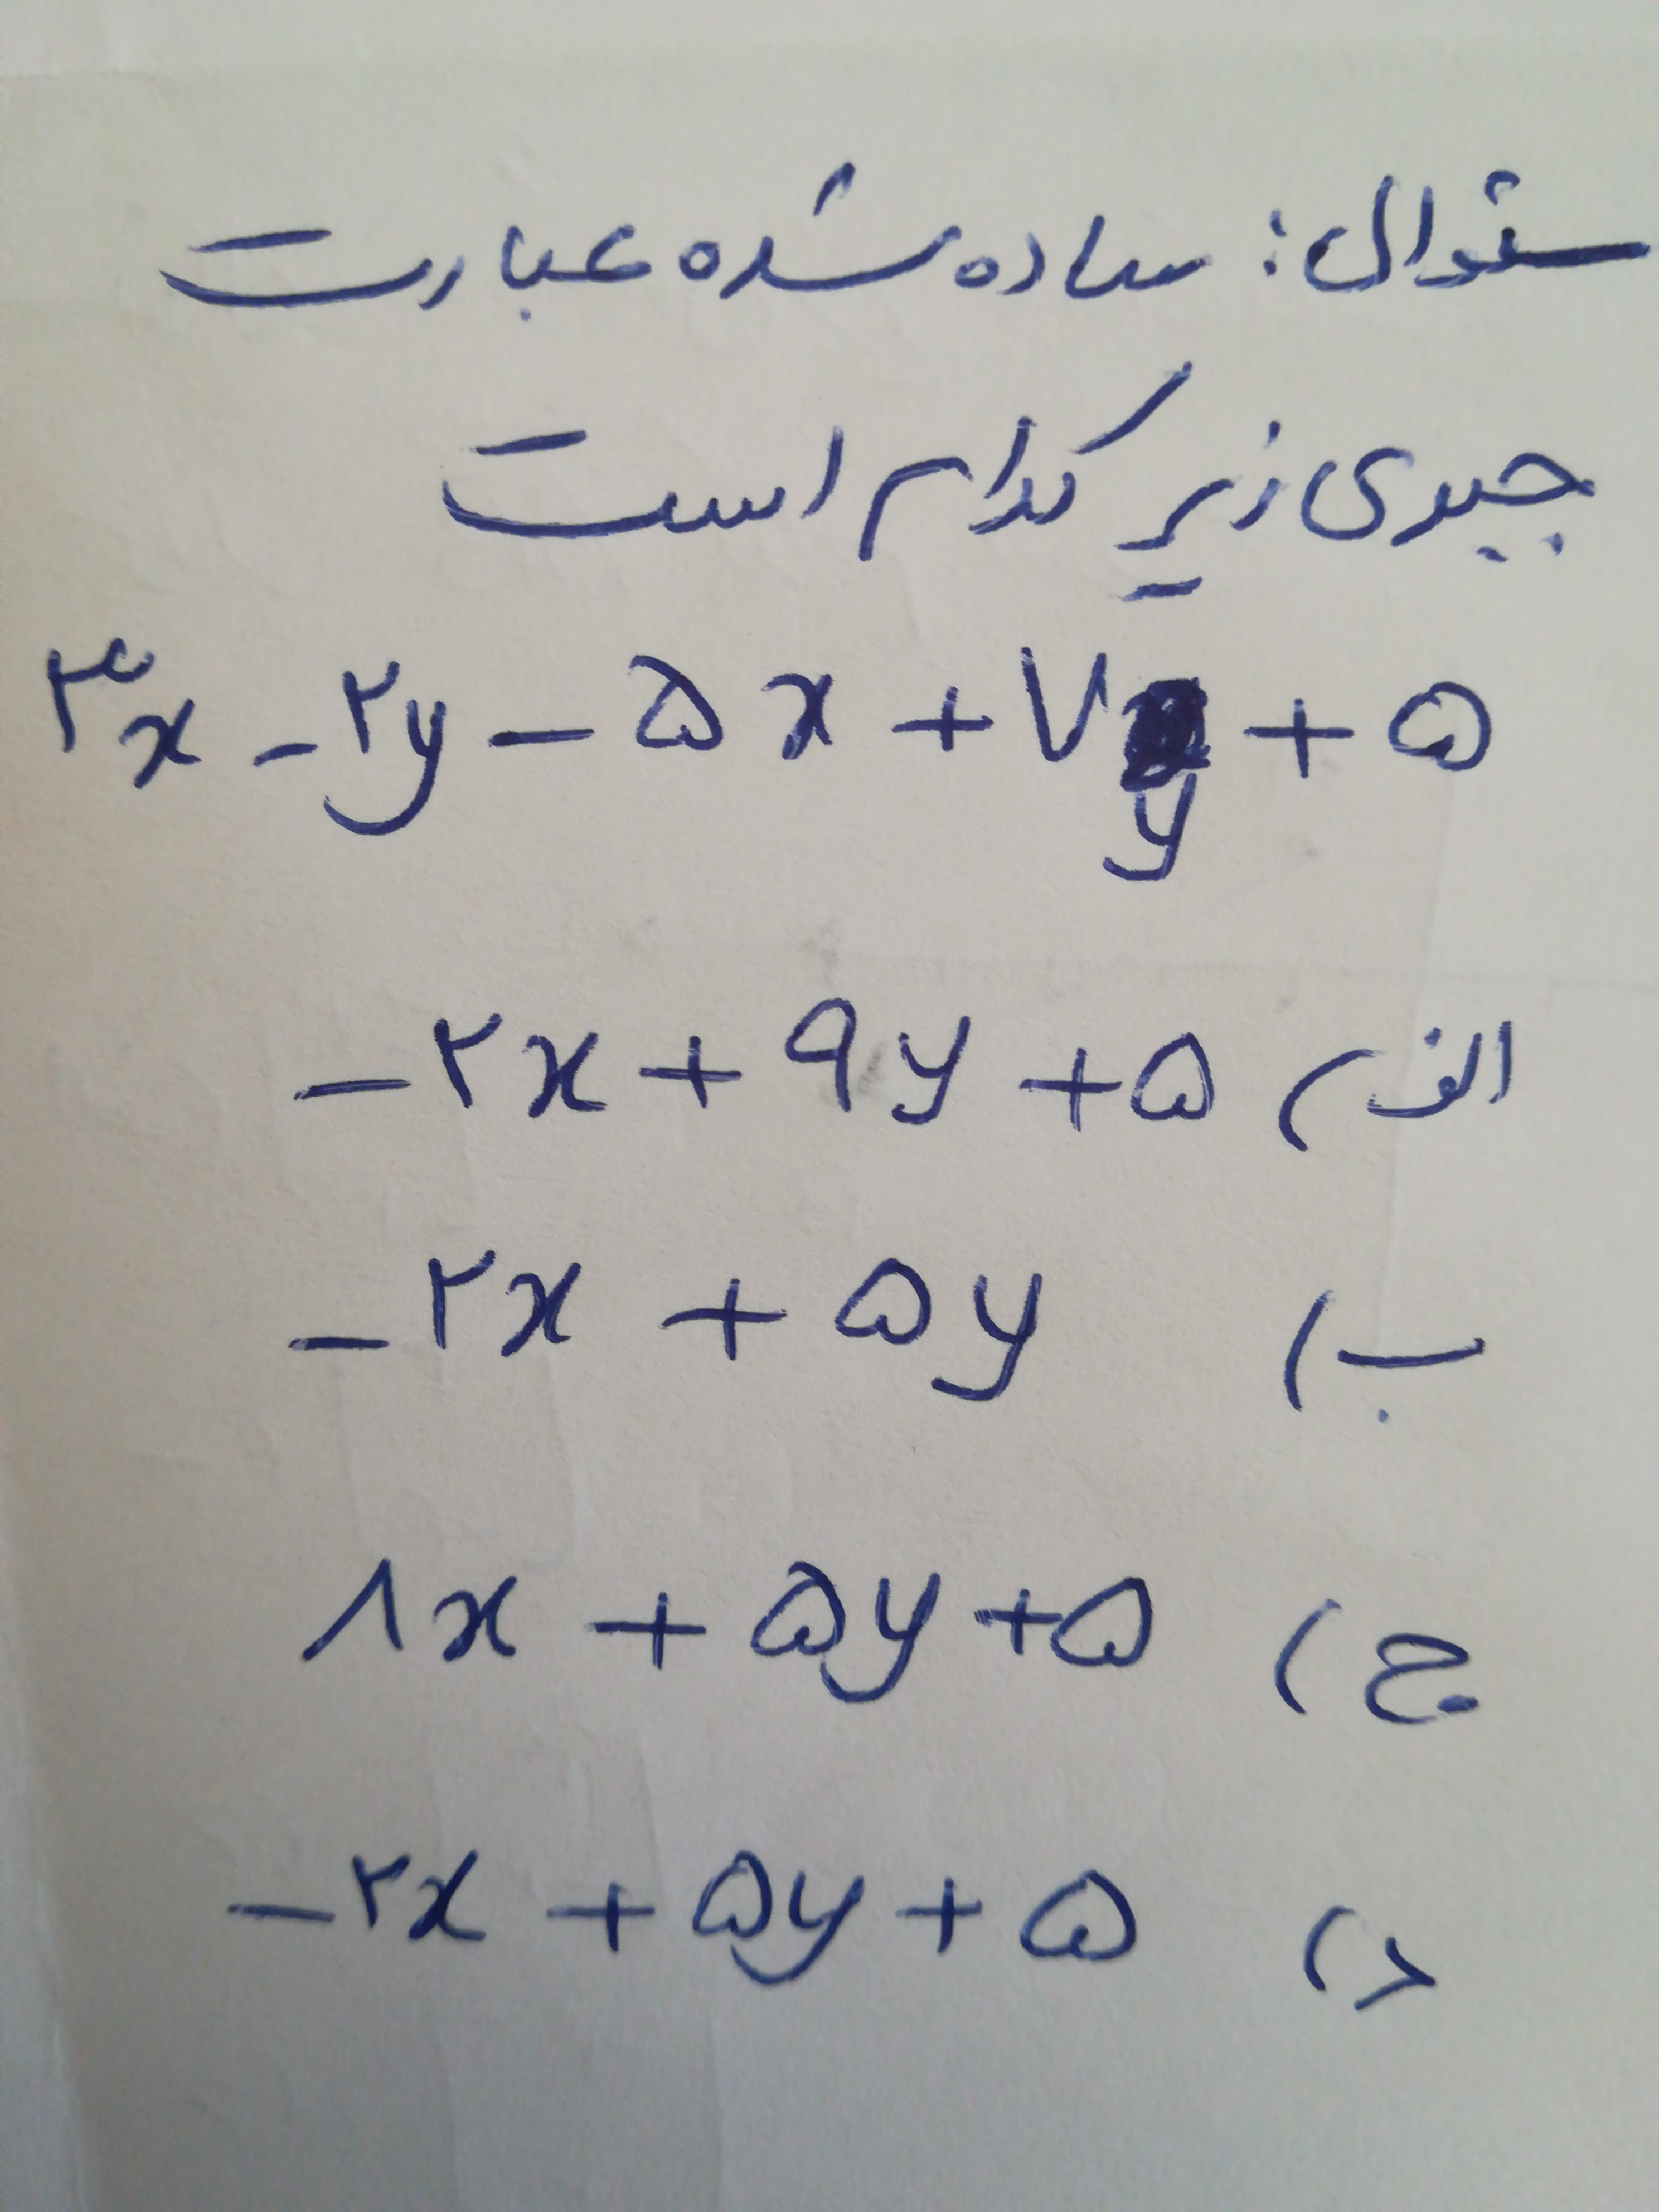 سئوال: ساده شده عبارت
جبری زیر کدام است
۳x - ۲y - ۵x + ۷y + ۵
الف) -۲x + ۹y + ۵
ب) -۲x + ۵y
ج) ۸x + ۵y + ۵
د) -۲x + ۵y + ۵